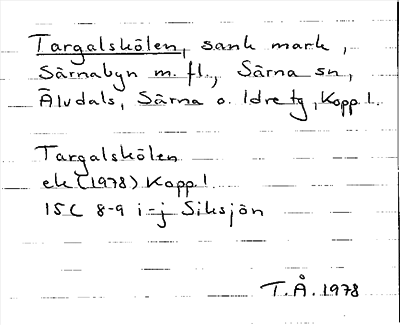 Targalskölen, sank mark,
Särnabyn m. fl., Särna sn,
Älvdals, Särna o. Idre tg, Kopp. l.
Targalskölen
ek (1978) Kopp. l.
15C 8-9 i-j Siksjön
T.Å. 1978